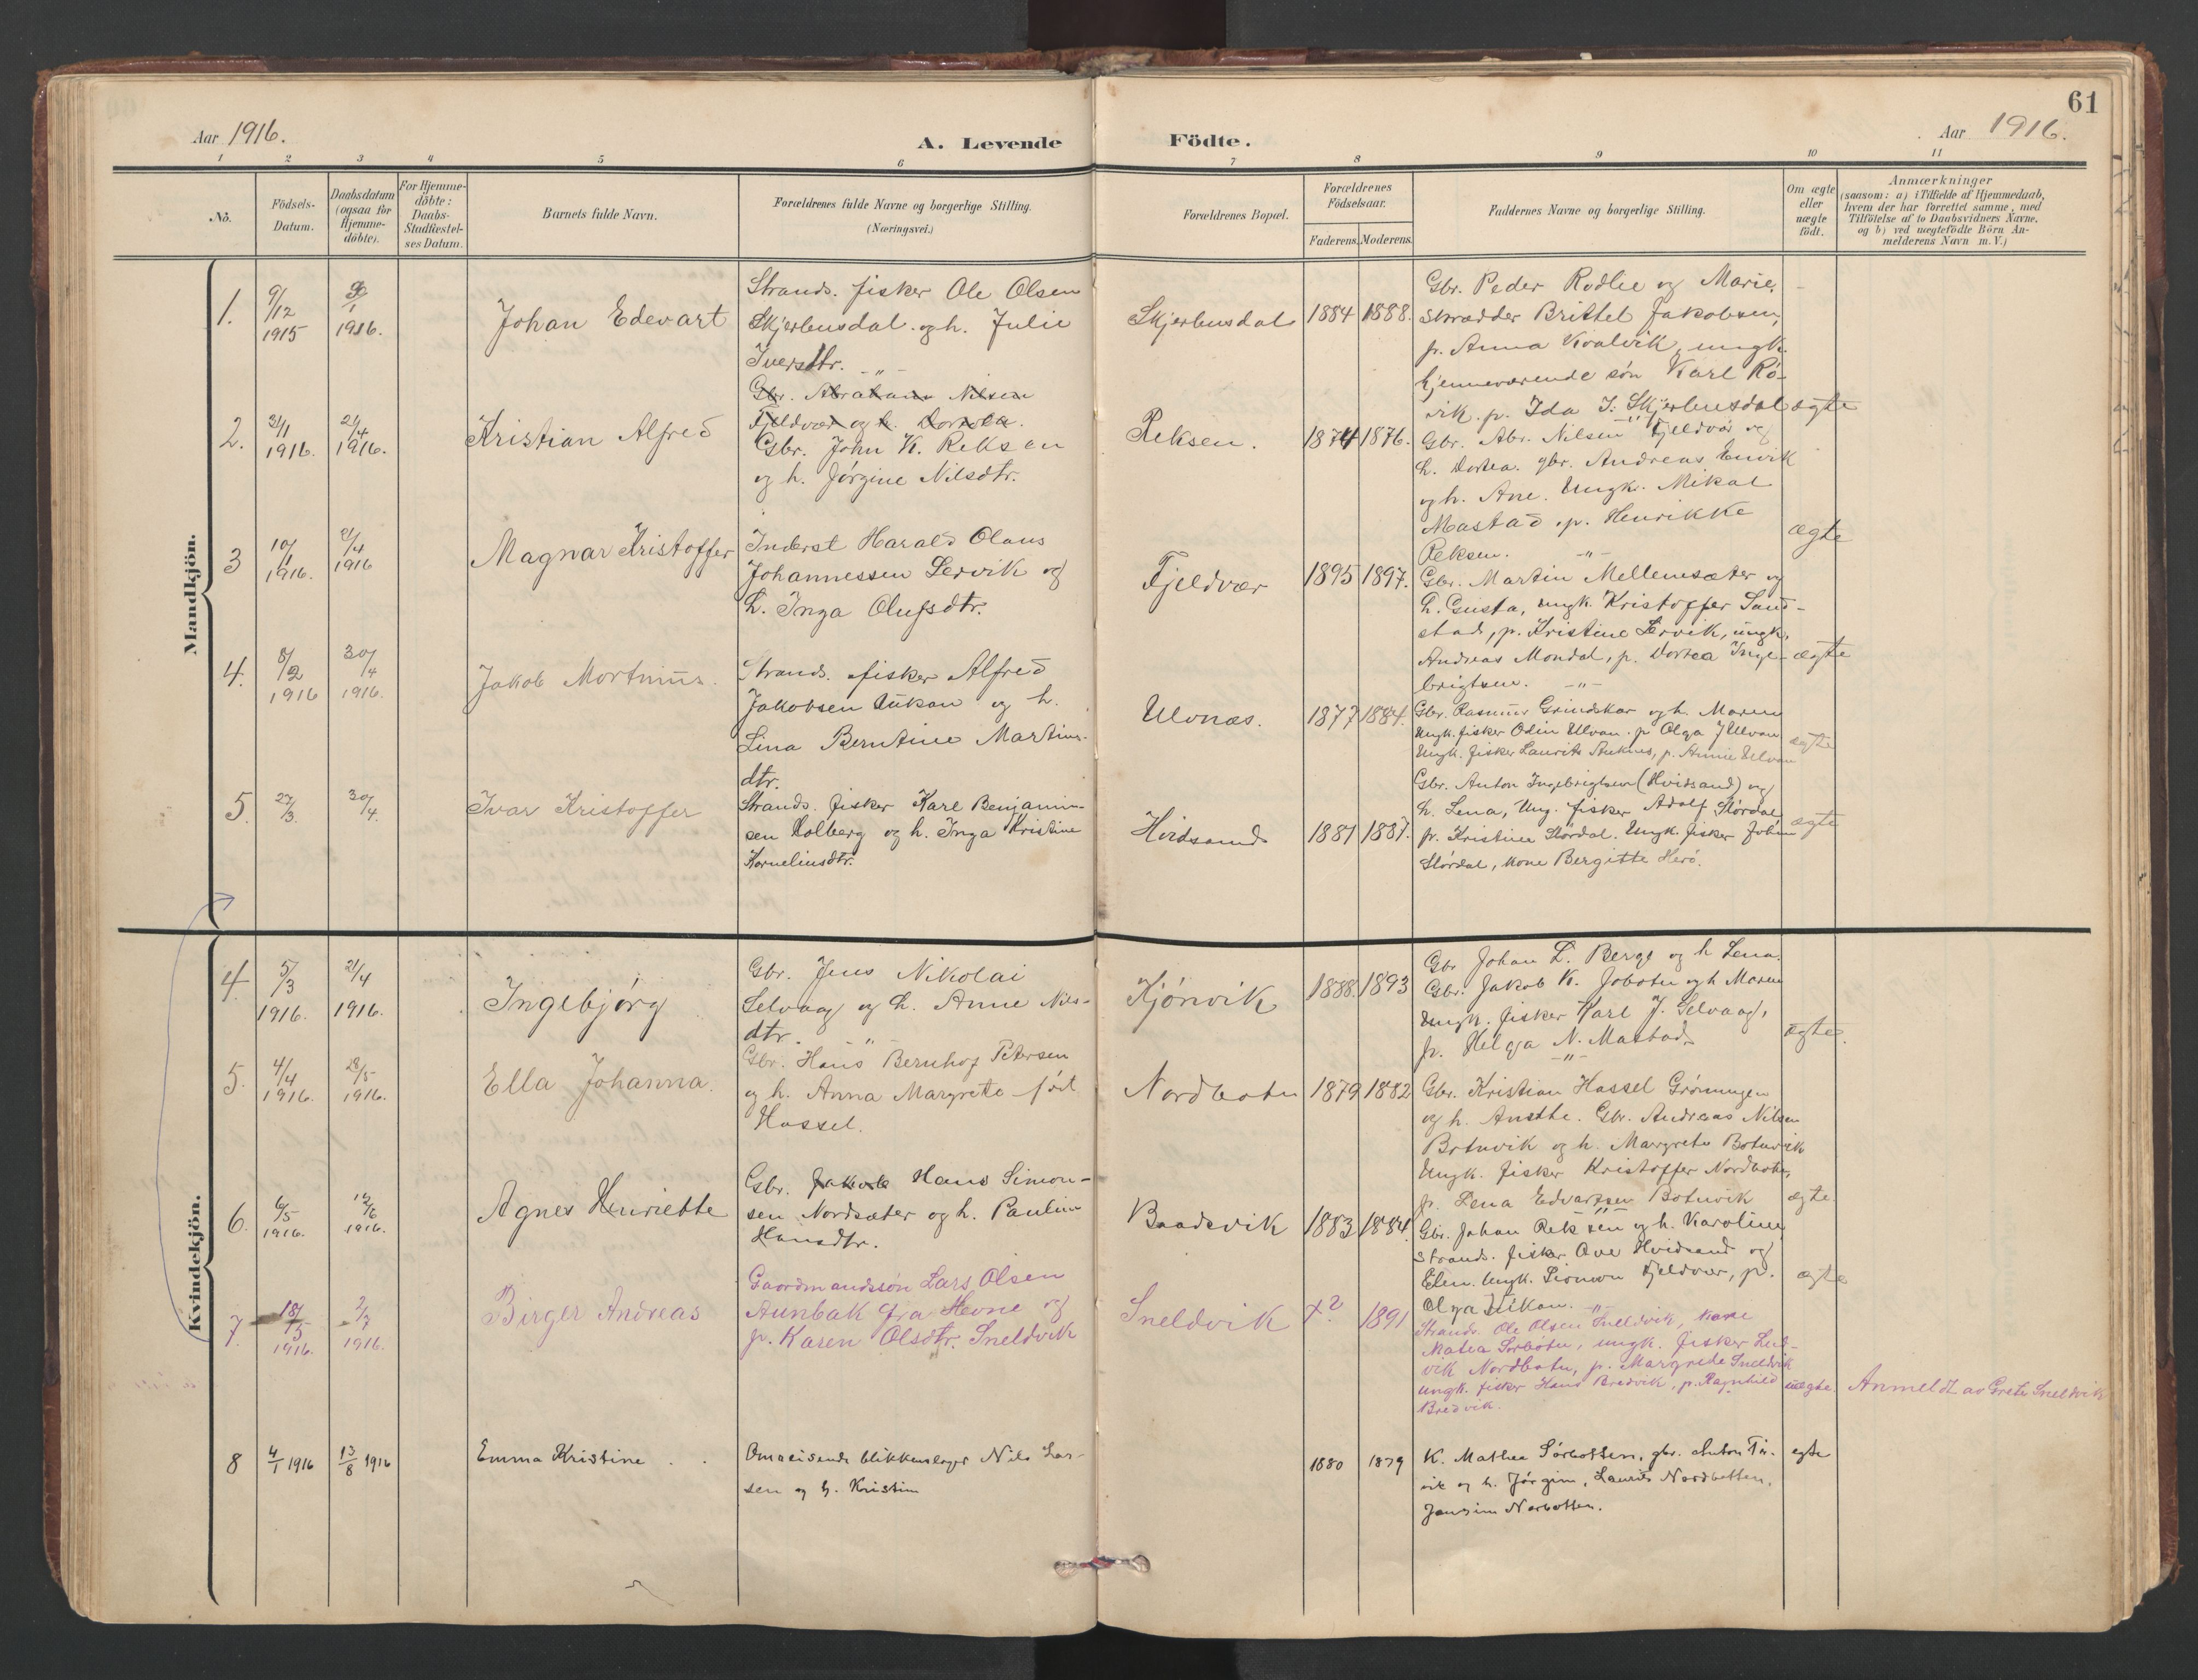 61
Aar 1916.
A. Levende Födte.
Aar 1916.
1 2 3 4 5 6 7 8 9 10 11
No.
Födsels-
Datum.
Daabsdatum
(ogsaa for
Hjemme-
döbte).
For Hjemme-
döbte:
Daabs-
Stadfæstel-
ses Datum.
Barnets fulde Navn.
Forældrenes fulde Navne og borgerlige Stilling.
(Næringsvei.)
Forældrenes Bopæl.
Forældrenes
Födselsaar.
Faderens. Moderens.
Faddernes Navne og borgerlige Stilling.
Om ægte
eller
uægte
födt.
Anmærkninger
(saasom: a) i Tilfælde af Hjemmedaab,
hvem der har forrettet samme, med
Tilföielse af to Daabsvidners Navne,
og b) ved uægtefödte Börn An-
melderens Navn m. V.)
Mandkjön.
1.
9/12
1915
/1
1916.
Johan Edevart
Strands. fisker Ole Olsen
Skjerbusdal og h. Julie
Iversdtr. -"-
Skjerbusdal
1884 1888.
Gbr. Peder Rodlie og Marie,
skrædder Brittel Jakobsen,
p. Anna Kvalvik, ungk.
hjemmeværende søn Karl Rö-
vik. p. Ida J. Skjerbusdal
ægte
2.
31/1
1916.
21/4
1916.
Kristian Alfred
Gbr. Abraham Nilsen
Fjeldvær og h. Dortea.
Gbr. John K. Reksen
og h. Jørgine Nilsdtr.
Reksen.
1874 1876.
Gbr. Abr. Nilsen Fjeldvær og
h. Dortea. gbr. Andreas Envik
og h. Ane. Ungk. Mikal
Mastad. p. Henrikke
Reksen. -"-
ægte
3
10/1
1916.
21/4
1916
Magnar Kristoffer
Inderst Harald Olaus
Johannessen Lervik og
h. Inga Olufsdtr.
Fjeldvær
1895 1897.
Gbr. Martin Mellemsæter og
h. Gusta, ungk. Kristoffer Sand-
stad, p. Kristine Lervik, ungk.
Andreas Mondal, p. Dortea Inge-
brigtsen. -"-
ægte
4.
8/2
1916
30/4
1916.
Jakob Mortinus.
Strands. fisker Alfred
Jakobsen Aukan og h.
Lina Berntine Martins-
dtr.
Ulvnæs.
1877 1884.
Gbr. Rasmus Grindskar og h. Maren
Ungk. fisker Odin Ulvan. p. Olga J Ulvan
Ungk. fisker Laurits Auknes, p. Annie Ulvan
ægte
5.
27/3.
30/4.
Ivar Kristoffer
Strands. fisker Karl Benjamin-
sen Kolberg og h. Inga Kristine
Korneliusdtr.
Hvidsand
1881 1887.
Gbr. Anton Ingebrigtsen (Hvidsand) og
h. Lena, Ung. fisker Adolf Størdal,
p. Kristine Størdal. Ungk. fisker Johan
Størdal, kone Bergitte Herö.
ægte
Kvindekjön.
4.
5/3
1916.
21/4
1916.
Ingebjörg
Gbr. Jens Nikolai
Selvaag og h. Anne Nils-
dtr. -"-
Kjönvik
1888. 1893
Gbr Johan L. Berge og h Lena.
Gbr. Jakob K. Jobotn og h Maren
Ungk. fisker Karl J. Selvaag,
p. Helga N. Mastad.
-"-
ægte.
5.
4/4
1916.
28/5
1916.
Ella Johanna.
Gbr. Hans Bernhof Petersen
og h. Anna Margrete født
Hassel.
Nordbotn
1879 1882
Gbr. Kristian Hassel Grønningen
og h. Anethe. Gbr. Andreas Nilsen
Botnvik og h. Margrete Botnvik
Ungk. fisker Kristoffer Nordbotn,
p. Lena Edvartsen Botnvik
ægte.
6.
6/5
1916.
12/6
1916.
Agnes Henriette
Gbr. Jakob Hans Simon-
sen Nordsæter og h. Pauline
Hansdtr.
Baadsvik
1883 1884.
Gbr. Johan Reksen og h. Karoline,
strands. fisker Ove Hvidsand og
Elen. Ungk. Simon Fjeldvær, p.
Olga Aukan. -"-
ægte
7.
18/5
1916.
2/7
1916.
Birger Andreas
Gaardmandssøn Lars Olsen
Aunbak fra Hevne og
p. Karen Olsdtr. Sneldvik
Sneldvik
+?
1891
Strands. Ole Olsen Snelldvik, kone
Matea Sørbotn, ungk. fisker Lud-
vik Nordbotn, p. Margrete Sneldvik
ungk. fisker Hans Bredvik, p. Ragnhild
Bredvik.
uægte.
Anmeldt av Grete Snelldvik
8
4/1 1916
13/8 1916
Emma Kristine
Omreisende blikkenslager Nils Lar-
sen og h. Kristine
1880 1879
K. Mathea Sørbotten, gbr. Anton Tin-
vik og h. Jørgine, Laurits Nordbotten,
Jensine Norbotten.
egte